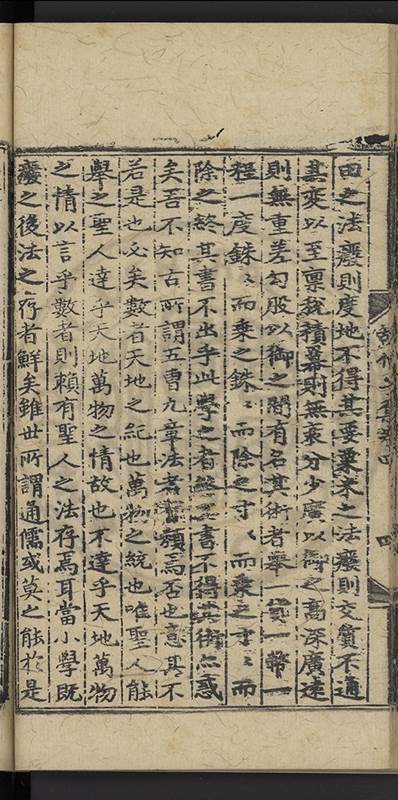 田之法廢則度地不得其要粟米之法廢則交質不通
其変以至禀税積冪則無衰分少廣以御之高深廣逺
則無重差勾股以御之間有名其術者舉一貨一幣一
程一度銖銖而乗之銖銖而除之寸寸而乗之寸寸而
除之終其書不出乎此學之者終其書不得其術亦惑
矣吾不知古所謂五曹九章法者舊類焉否也意其不
若是也必矣數者天地之紀也萬物之統也唯聖人能
舉之聖人達乎天地萬物之情故也不達乎天地萬物
之情以言乎數者則賴有聖人之法存焉耳當小學既
廢之後法之存者鮮矣雖世所謂通儒或莫之能於是
四